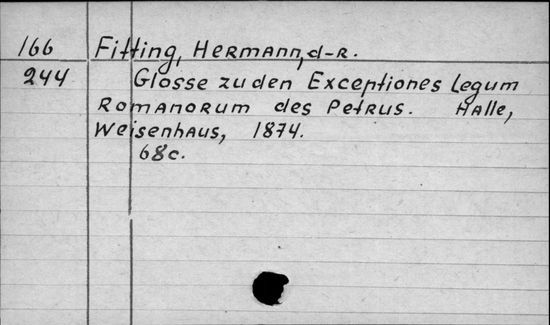 166 Fitting, Hermann, d-r.
244 Glosse zu den Exceptiones legum
Romanorum des Petrus. Halle,
Weisenhaus, 1874.
68c.